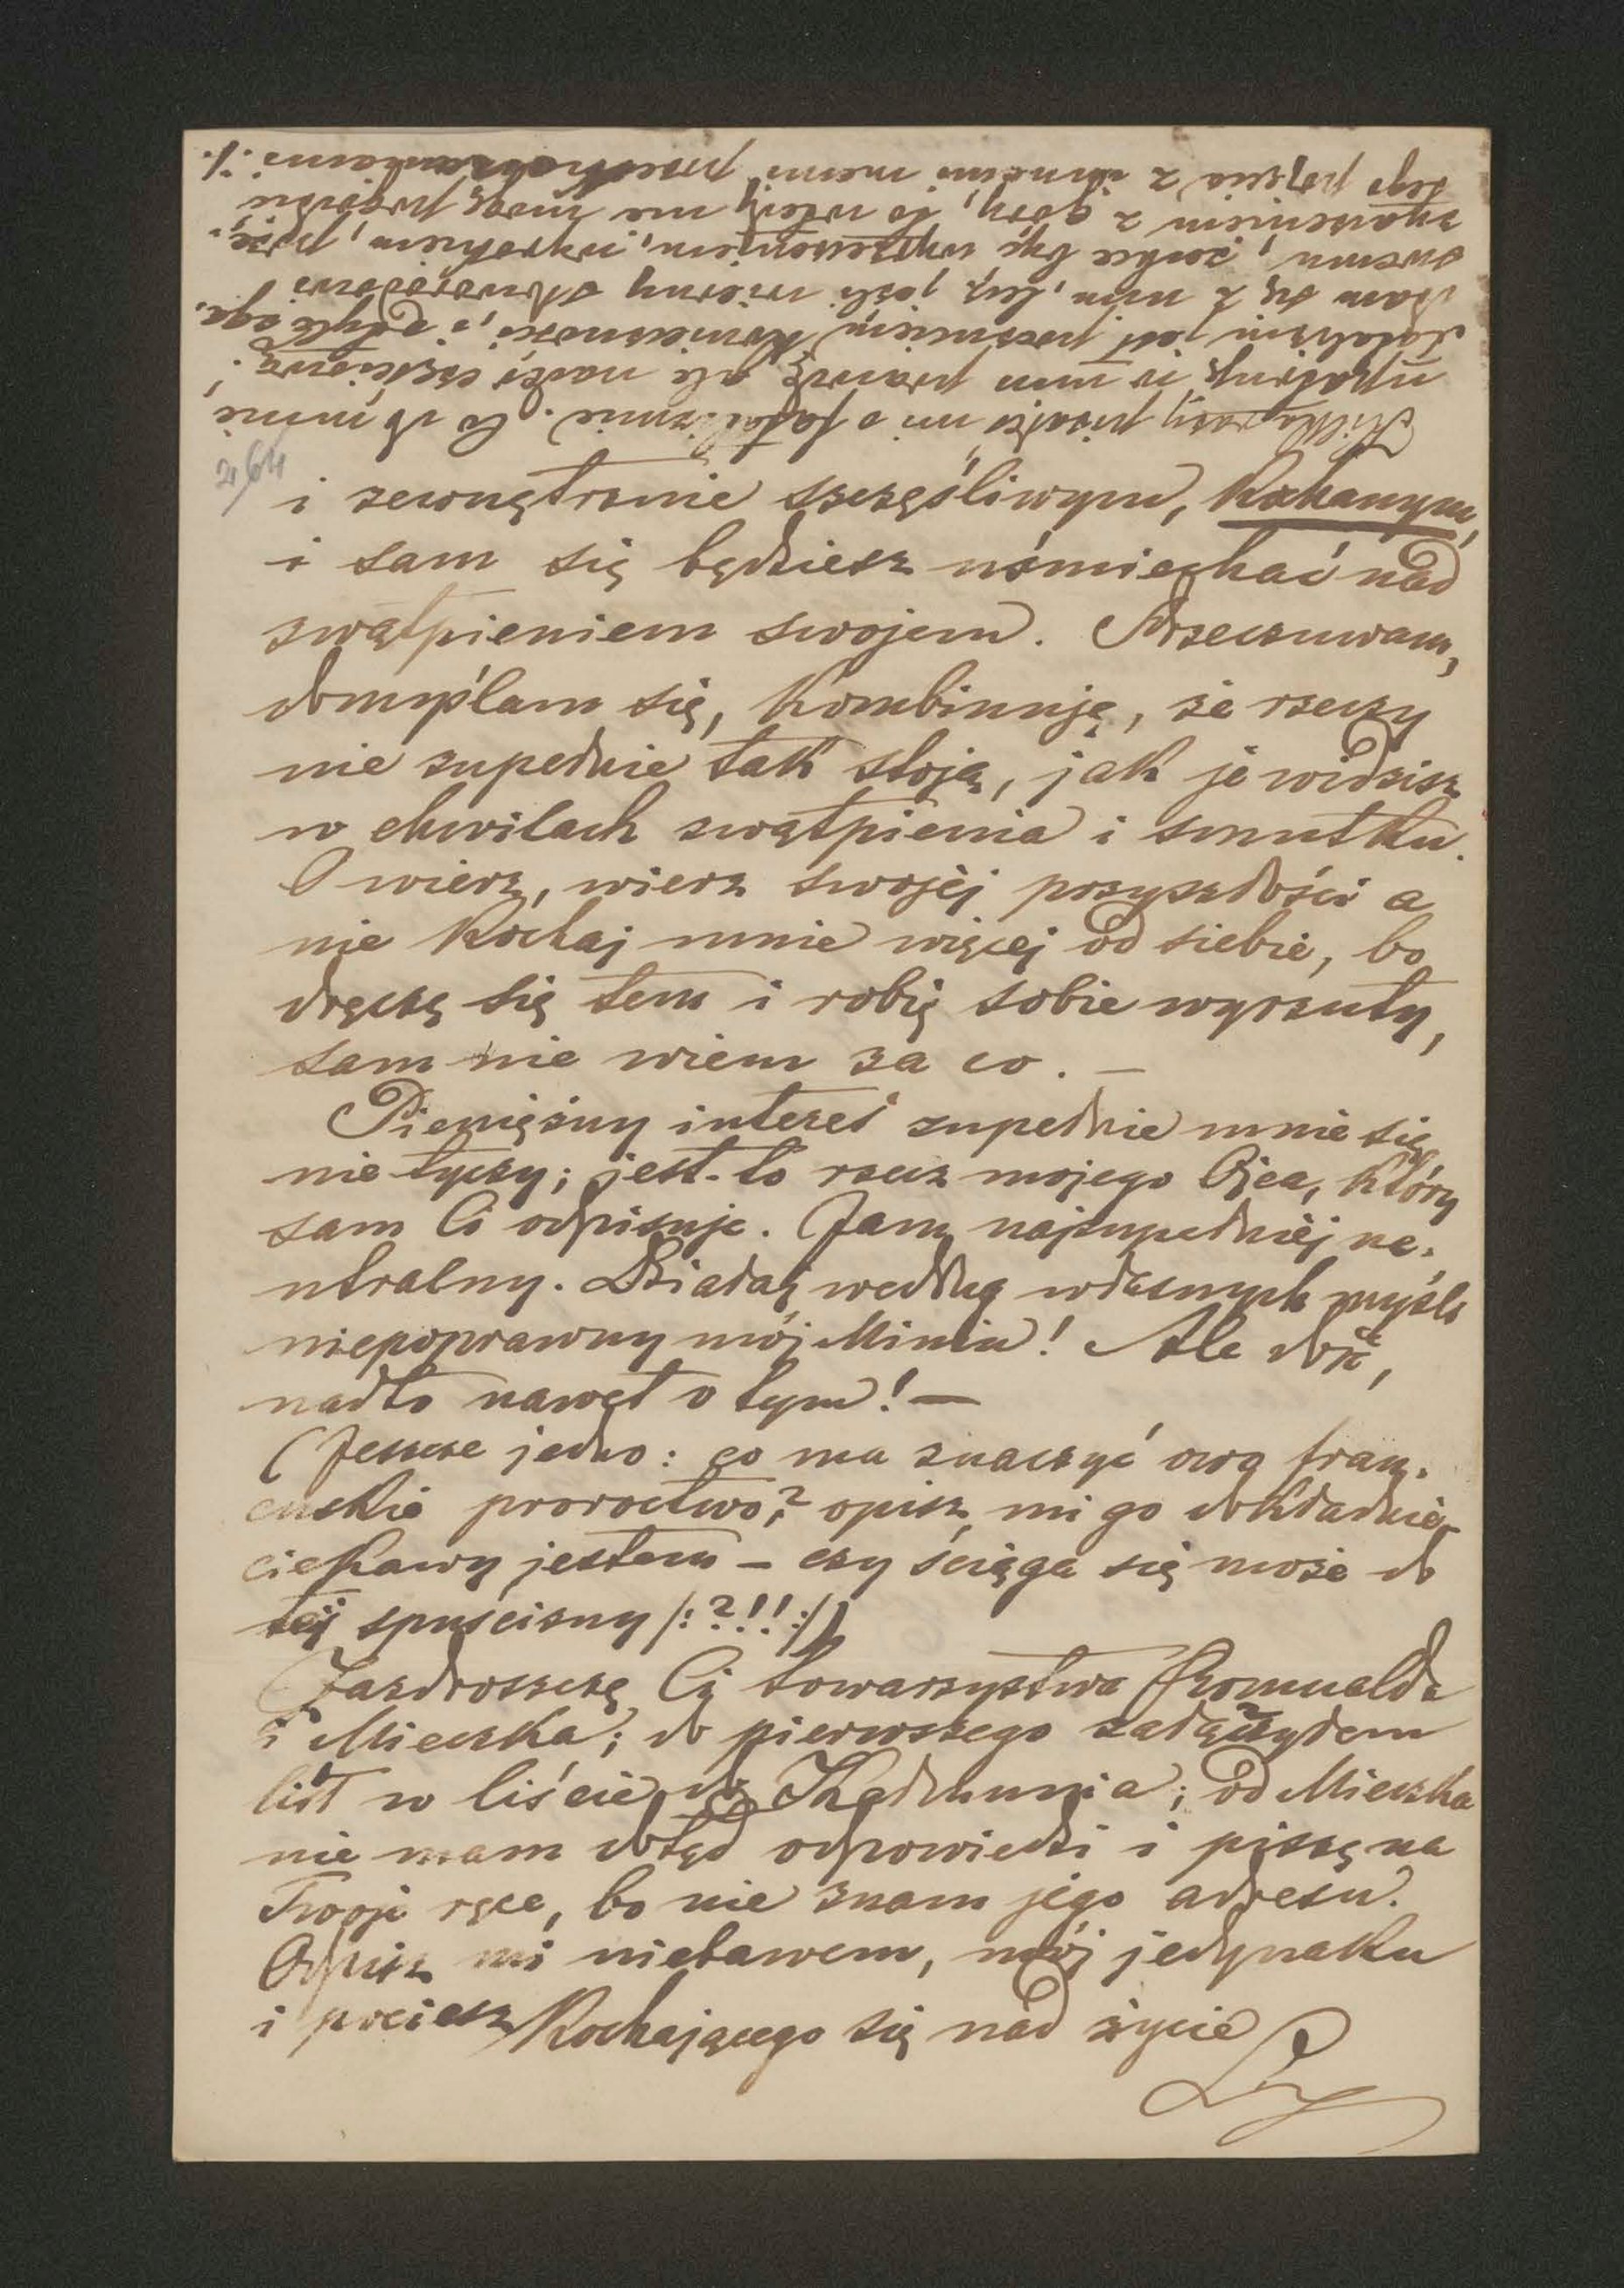 i zewnętrznie szczęśliwym, kochanym,
i sam się będziesz uśmiechać nad
zwątpieniem swojem. Przeczuwam,
domyślam się, kombinuję, że rzeczy
nie zupełnie tak stoją, jak je widzisz
w chwilach zwątpienia i smutku.
O wierz, wierz swojéj przyszłości a
nie kochaj mnie więcej od siebie, bo
dręczę się tem i robię sobie wyrzuty,
sam nie wiem za co. —
Pieniężny interes zupełnie mnie się
nie tyczy; jest-to rzecz mojego Ojca, który
sam Ci odpisuje. Jam najzupełniéj ne-
utralny. Działaj według własnych myśli
niepoprawny mój Miniu! Ale dość,
nadto nawet o tym! —
(Jeszcze jedno: co ma znaczyć owo fran-
cuskie proroctwo? opisz mi go dokładnie,
ciekawy jestem — czy ściąga się może do
téj spuścizny /:?!!:/)
Zazdroszczę Ci towarzystwa Romualda
i Mieczka; do pierwszego załączyłem
list w liście do od Mieczka
nie mam dotąd odpowiedzi i piszę na
Twoje ręce, bo nie znam jego adresu.
Odpisz mi niebawem, mój jedynaku
i pociesz kochającego Cię nad życie
Kilka razy pisałeś mi o fatalizmie. Co do mnie
upatruję w nim prawdę, ale nadto częściową.
Fatalizm jest poczuciem konieczności, i o tyle zga-
dzam się z nim, lecz jeśli mierny
swemu, zechce być wyrzeczeniem, wyrokiem, prze-
znaczeniem z góry, to wtedy nie mogę pogodzić
tego pojęcia z innemi memi przekonaniami :/.
264